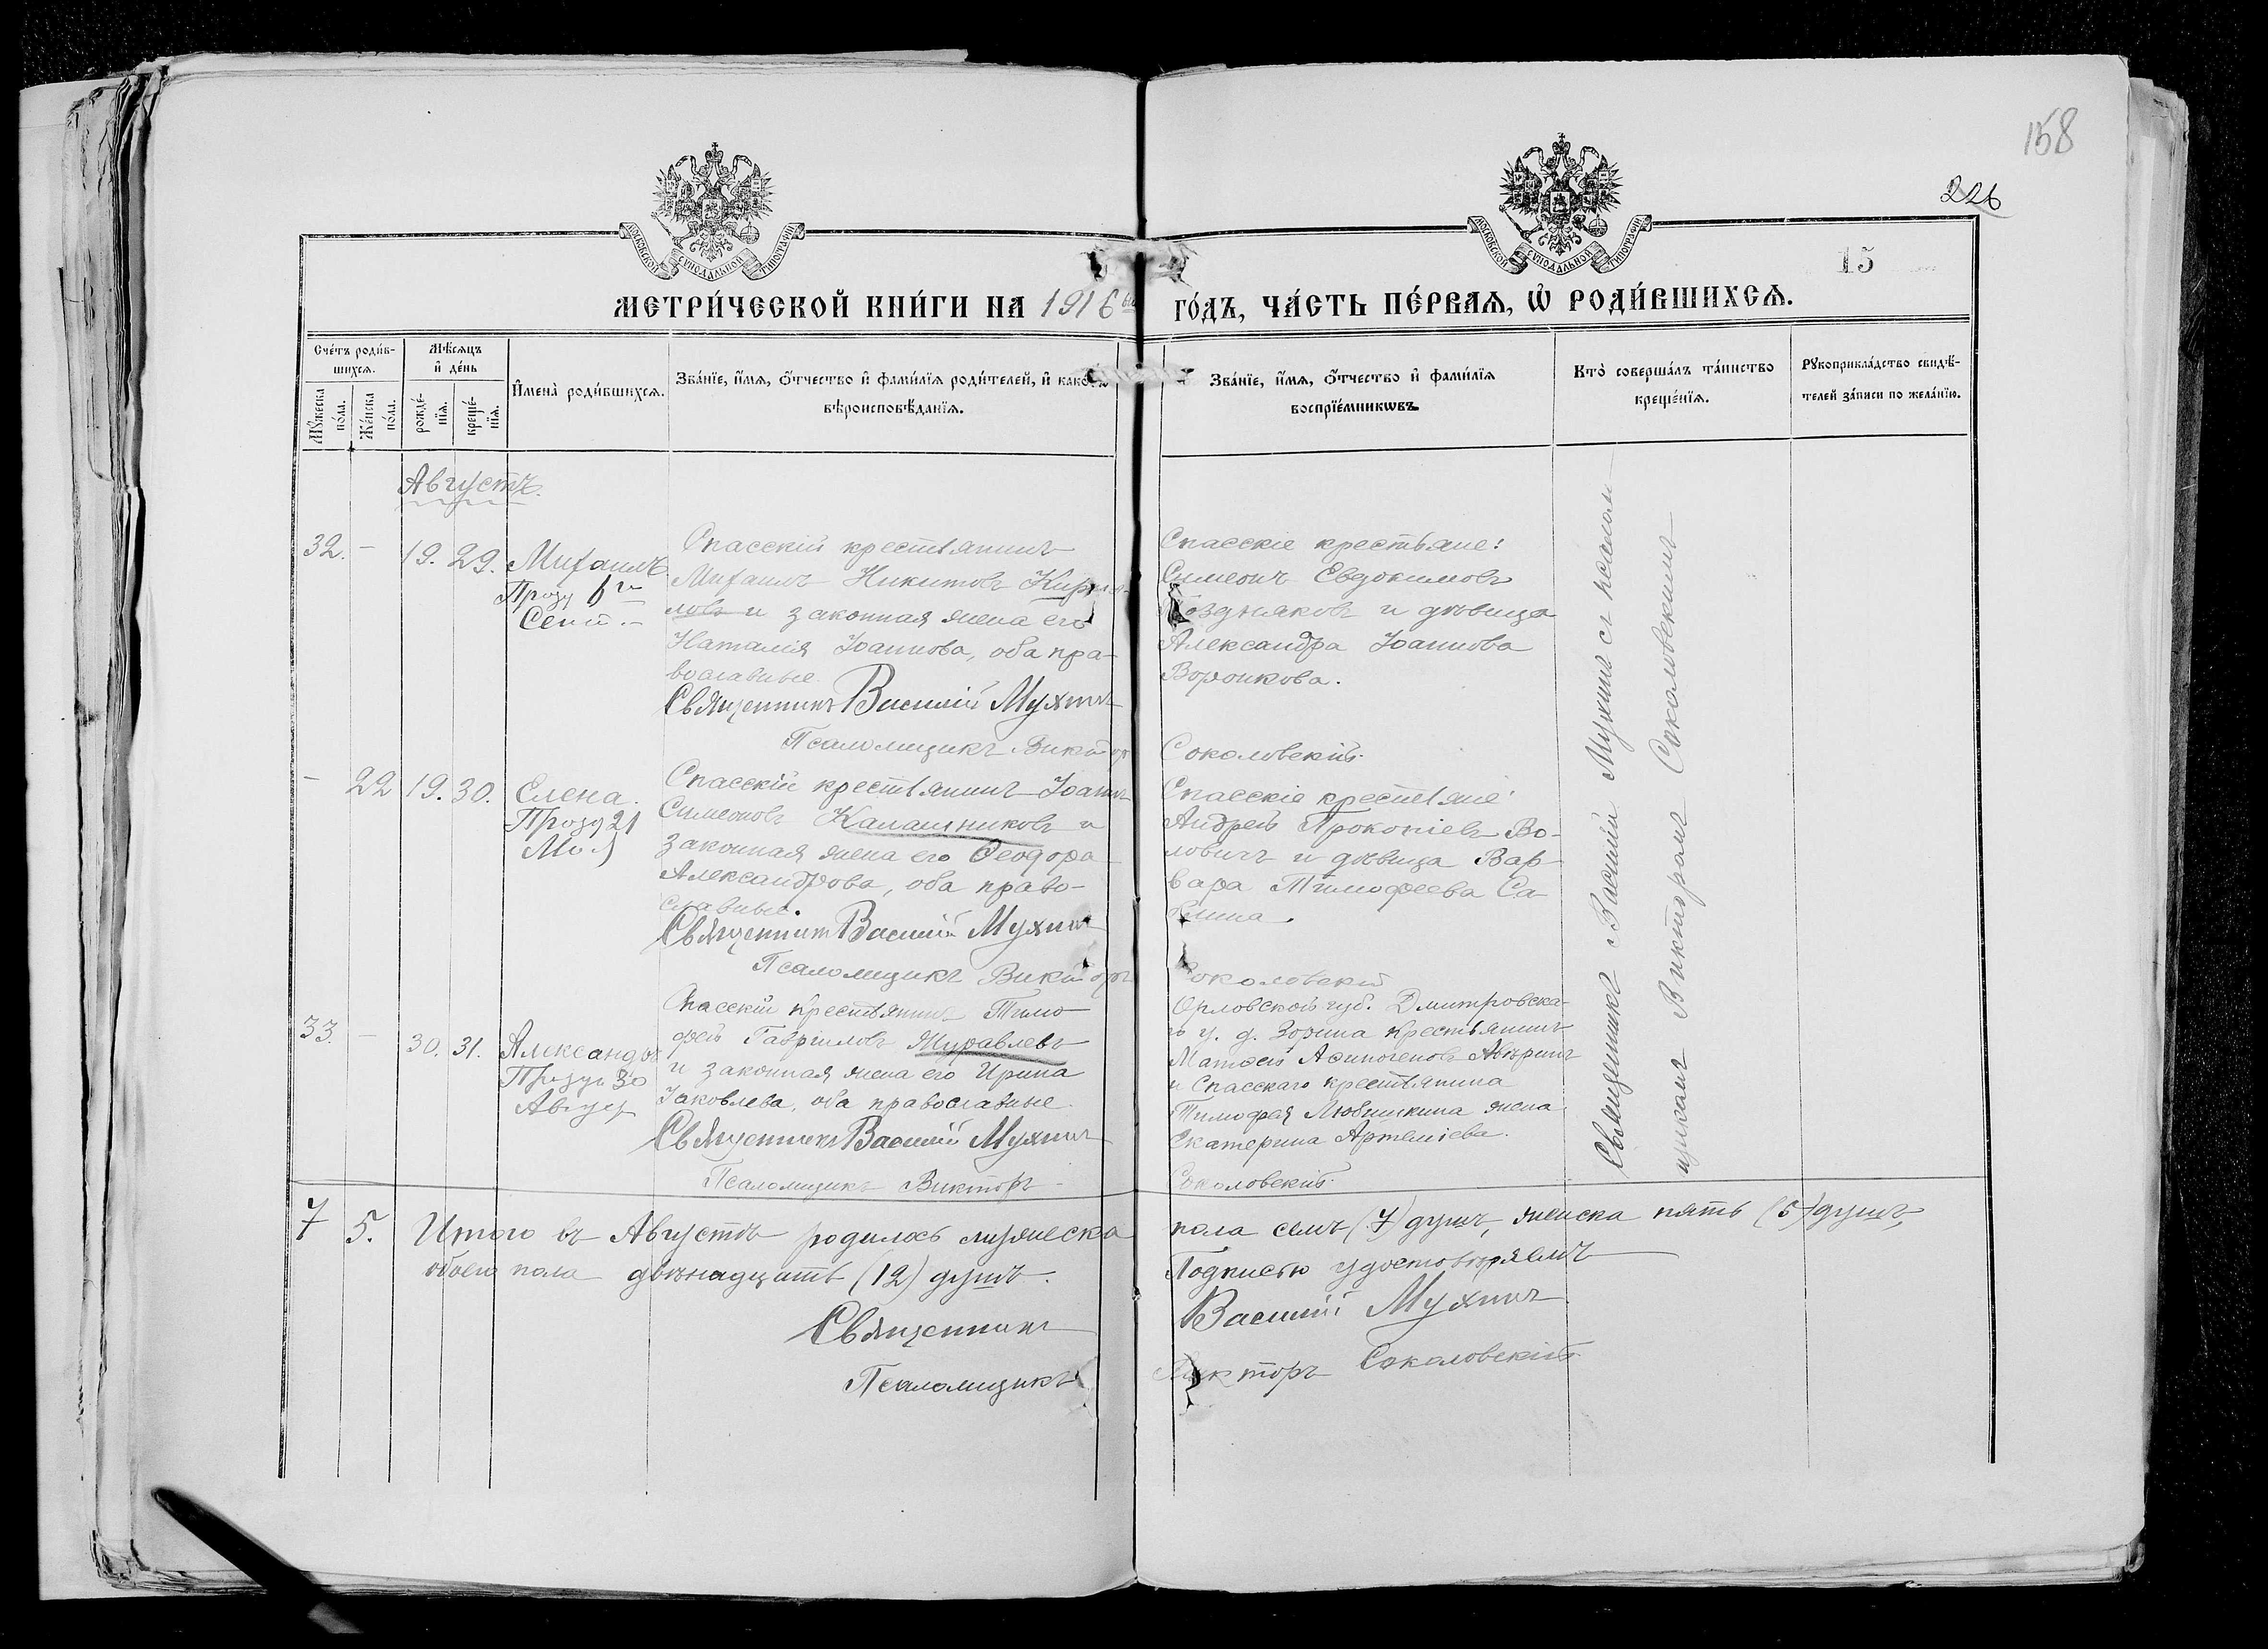 158
226
15
МОСКОВСКОЙ СѴНОДАЛЬНОЙ ТИПОГРАФІИ
МОСКОВСКОЙ СѴНОДАЛЬНОЙ ТИПОГРАФІИ
МЕТРИ́ЧЕСКОЙ КНИ́ГИ НА 1916
ГО́ДЪ, ЧА́СТЬ ПЕ́РВАЯ, Ѡ҆ РОДИ́ВШИХСЯ.
Сче́тъ роди́в-
шихся.
Мѣ́сяцъ
и҆ де́нь
Мꙋ́жеска
по́ла.
Же́нска
по́ла.
рожде́-
нїя.
креще́-
нїя.
И҆мена̀ роди́вшихся.
Зва́нїе, и҆́мя, ѻ҆́тчество и҆ фамі́лїя роди́телей, и҆ како́гѡ
вѣроисповѣ́данїя.
Зва́нїе, и҆́мя, ѻ҆́тчество и҆ фамі́лїя
воспрїе́мникѡвъ.
Кто̀ соверша́лъ та́инство
креще́нїя.
Рꙋкоприкла́дство свидѣ́-
телей за́писи по жела́нїю.
Августъ.
32. — 19. 29. Михаилъ
Празд 6го
Сент.
Спасскій крестьянинъ
Михаилъ Никитовъ Кирил-
ловъ и законная жена его
Наталія Іоаннова, оба пра-
вославные.
Священникъ Василій Мухинъ
Псаломщикъ Викторъ
Спасскіе крестьяне:
Симеонъ Евдокимовъ
Поздняковъ и дѣвица
Александра Іоаннова
Воронкова.
Соколовскій.
— 22 19. 30. Елена.
Празд 21
Мая
Спасскій крестьянинъ Іоаннъ
Симеоновъ Калашниковъ и
законная жена его Ѳеодора
Александрова, оба право-
славные.
Священникъ Василій Мухинъ
Псаломщикъ Викторъ
Спасскіе крестьяне:
Андрей Прокопіевъ Во-
ловичъ и дѣвица Вар-
вара Тимофеева Са-
вина.
Соколовскій
33. — 30. 31. Александръ
Празд 30
Август
Спасскій крестьянинъ Тимо-
фей Гавріиловъ Журавлевъ
и законная жена его Ирина
Іаковлева, оба православные.
Священникъ Василій Мухинъ
Псаломщикъ Викторъ
Орловской губ. Дмитровска-
го у. д. Зорина крестьянинъ
Матѳей Аѳиногеновъ Авѣринъ
и Спасскаго крестьянина
Тимофея Любишкина жена
Екатерина Артеміева.
Соколовскій.
Священникъ Василій Мухинъ съ псалом-
щикомъ Викторомъ Соколовскимъ
7 5. Итого въ Августѣ родилось мужеска
пола семь (7) душъ, женска пять (5) душъ,
обоего пола двѣнадцать (12) душъ.
Подписью удостовѣряемъ
Священникъ
Василій Мухинъ
Псаломщикъ
Викторъ Соколовскій